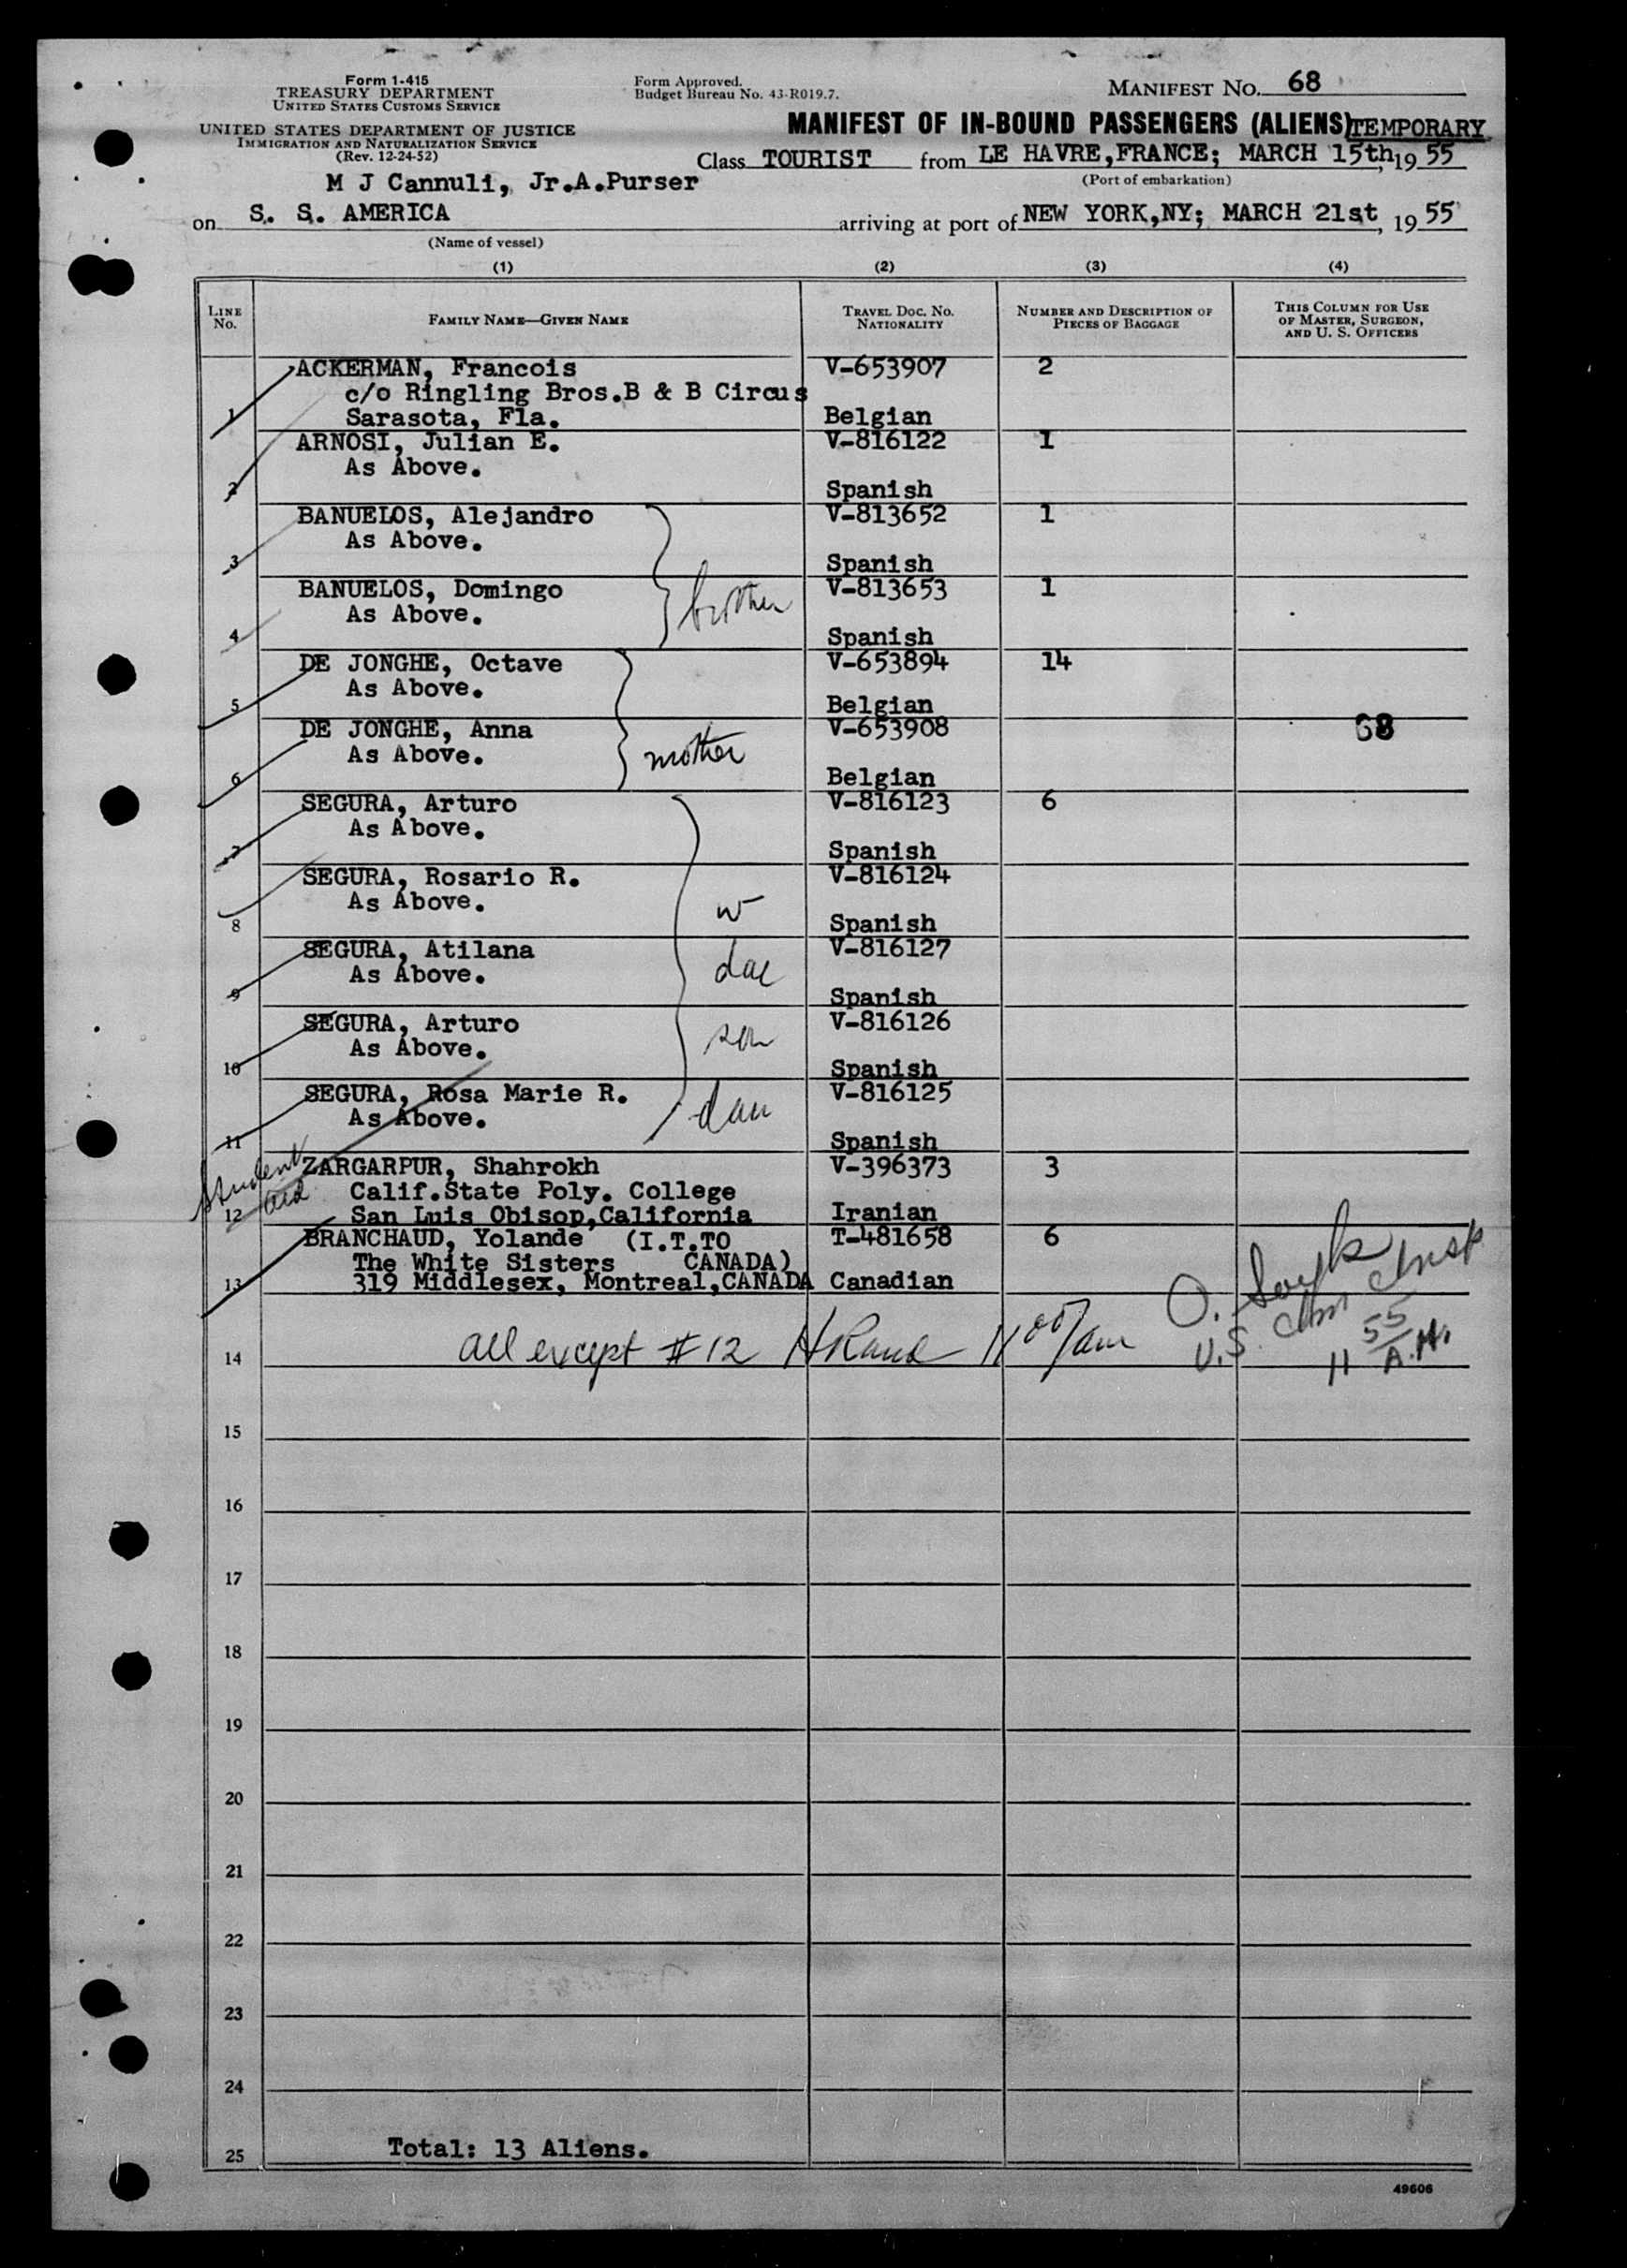 Form 1-415
TREASURY DEPARTMENT
UNITED STATES CUSTOMS SERVICE
UNITED STATES DEPARTMENT OF JUSTICE
IMMIGRATION AND NATURALIZATION SERVICE
(Rev. 12-24-52)
Form Approved.
Budget Bureau No. 43-R019.7.
MANIFEST NO. 68
MANIFEST OF IN-BOUND PASSENGERS (ALIENS) TEMPORARY
Class TOURIST from LE HAVRE,FRANCE; MARCH 15th, 19 55
(Port of embarkation)
M J Cannuli, Jr.A.Purser
on S. S. AMERICA arriving at port of NEW YORK,NY; MARCH 21st, 19 55
(Name of vessel)
(1) (2) (3) (4)
LINE NO. FAMILY NAME—GIVEN NAME TRAVEL DOC. NO. NATIONALITY NUMBER AND DESCRIPTION OF PIECES OF BAGGAGE THIS COLUMN FOR USE OF MASTER, SURGEON, AND U. S. OFFICERS
ACKERMAN, Francois V-653907 2
c/o Ringling Bros.B & B Circus
1 Sarasota, Fla. Belgian
ARNOSI, Julian E. V-816122 1
As Above.
2 Spanish
BANUELOS, Alejandro V-813652 1
As Above.
3 Spanish
BANUELOS, Domingo brother V-813653 1
As Above.
4 Spanish
DE JONGHE, Octave V-653894 14
As Above.
5 Belgian
DE JONGHE, Anna V-653908 68
As Above. mother
6 Belgian
SEGURA, Arturo V-816123 6
As Above.
7 Spanish
SEGURA, Rosario R. V-816124
As Above. w
8 Spanish
SEGURA, Atilana V-816127
As Above. dau
9 Spanish
SEGURA, Arturo V-816126
As Above. son
10 Spanish
SEGURA, Rosa Marie R. V-816125
As Above. dau
11 Spanish
Student ZARGARPUR, Shahrokh V-396373 3
Calif.State Poly. College
12 San Luis Obisop,California Iranian
BRANCHAUD, Yolande (I.T.TO T-481658 6
The White Sisters CANADA)
13 319 Middlesex, Montreal,CANADA Canadian
all except #12 11 00/am
U.S. Imm Insp
11 55 A.M.
14
15
16
17
18
19
20
21
22
23
24
25 Total: 13 Aliens.
49606